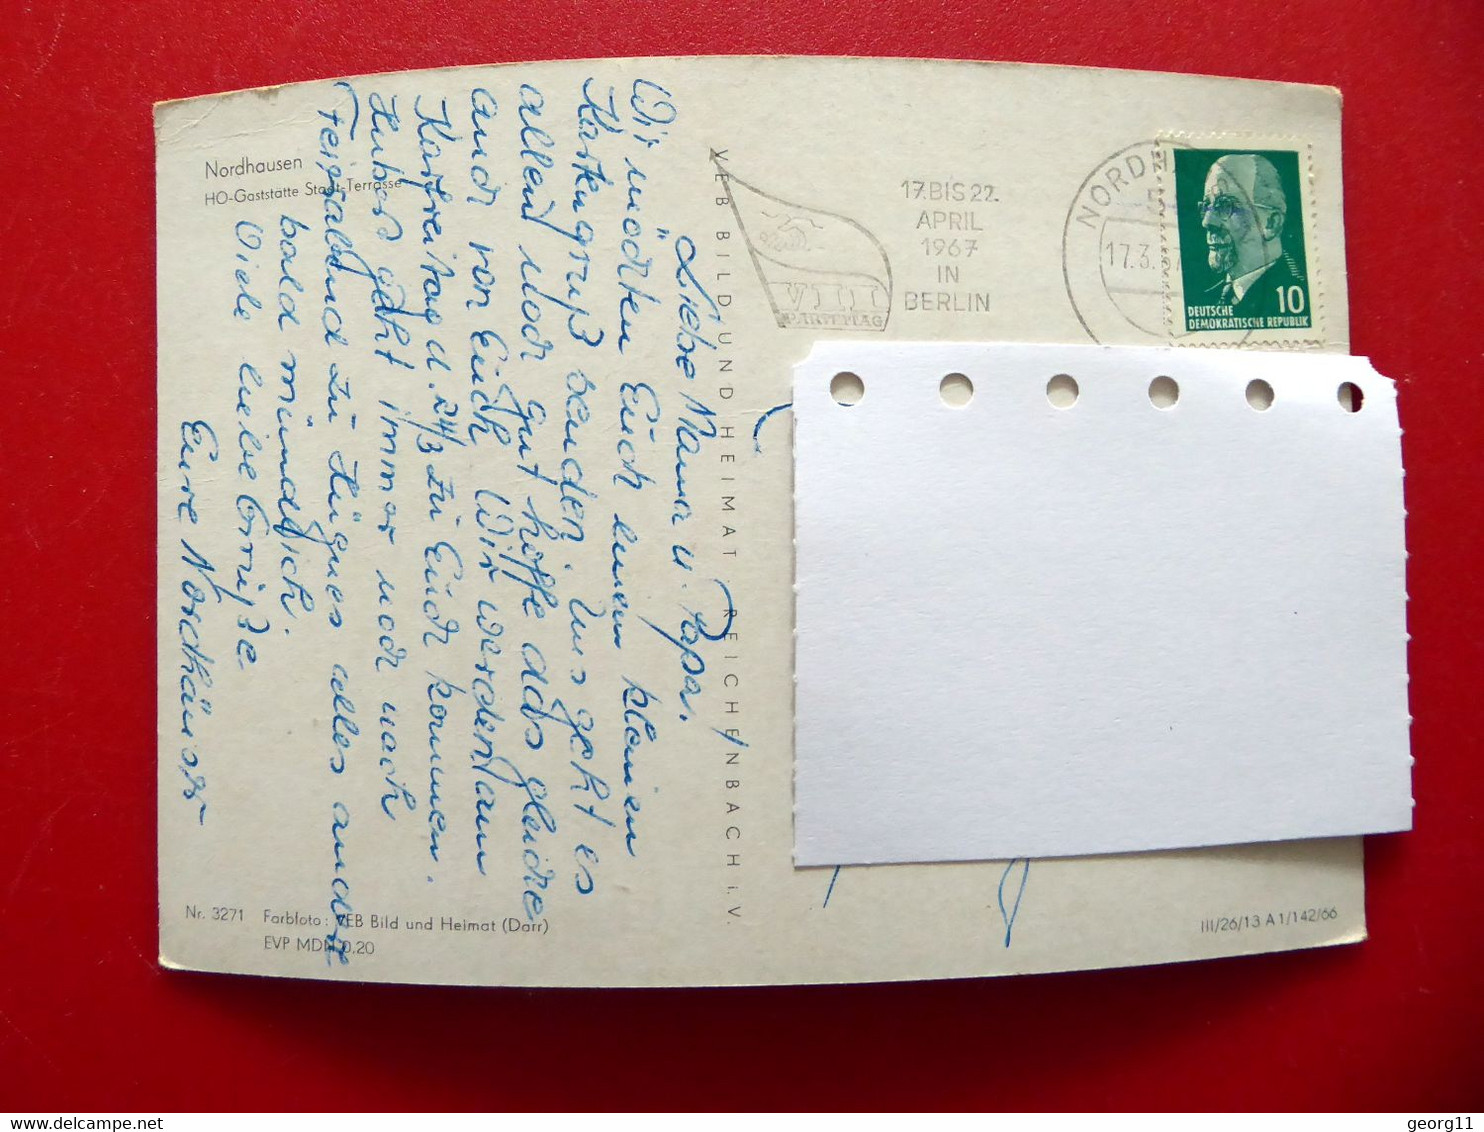 Nordhausen
HO-Gaststätte Stadt-Terrasse
17. BIS 22.
APRIL
1967
IN
BERLIN
VII
PARTEITAG
NORDH
17.3.
10
DEUTSCHE
DEMOKRATISCHE REPUBLIK
VEB BILD UND HEIMAT REICHENBACH i. V.
Liebe Mama u. Papa.
Wir möchten Euch einen kleinen
Kartengruß senden. Uns geht es
allen noch gut hoffe das gleiche
auch von Euch. Wir werden am
Karfreitag d. 24/3 zu Euch kommen.
Hubert geht immer noch nach
und zu alles andere
bald mündlich.
Viele liebe Grüße
Eure Nordhäuser
Nr. 3271 Farbfoto: VEB Bild und Heimat (Darr)
EVP MDN 0.20
III/26/13 A 1/142/66
georg11